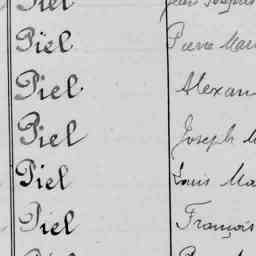 Piel Jean
Piel Pierre Mari
Piel Alexan
Piel Joseph M
Piel Louis Ma
Piel François
Piel